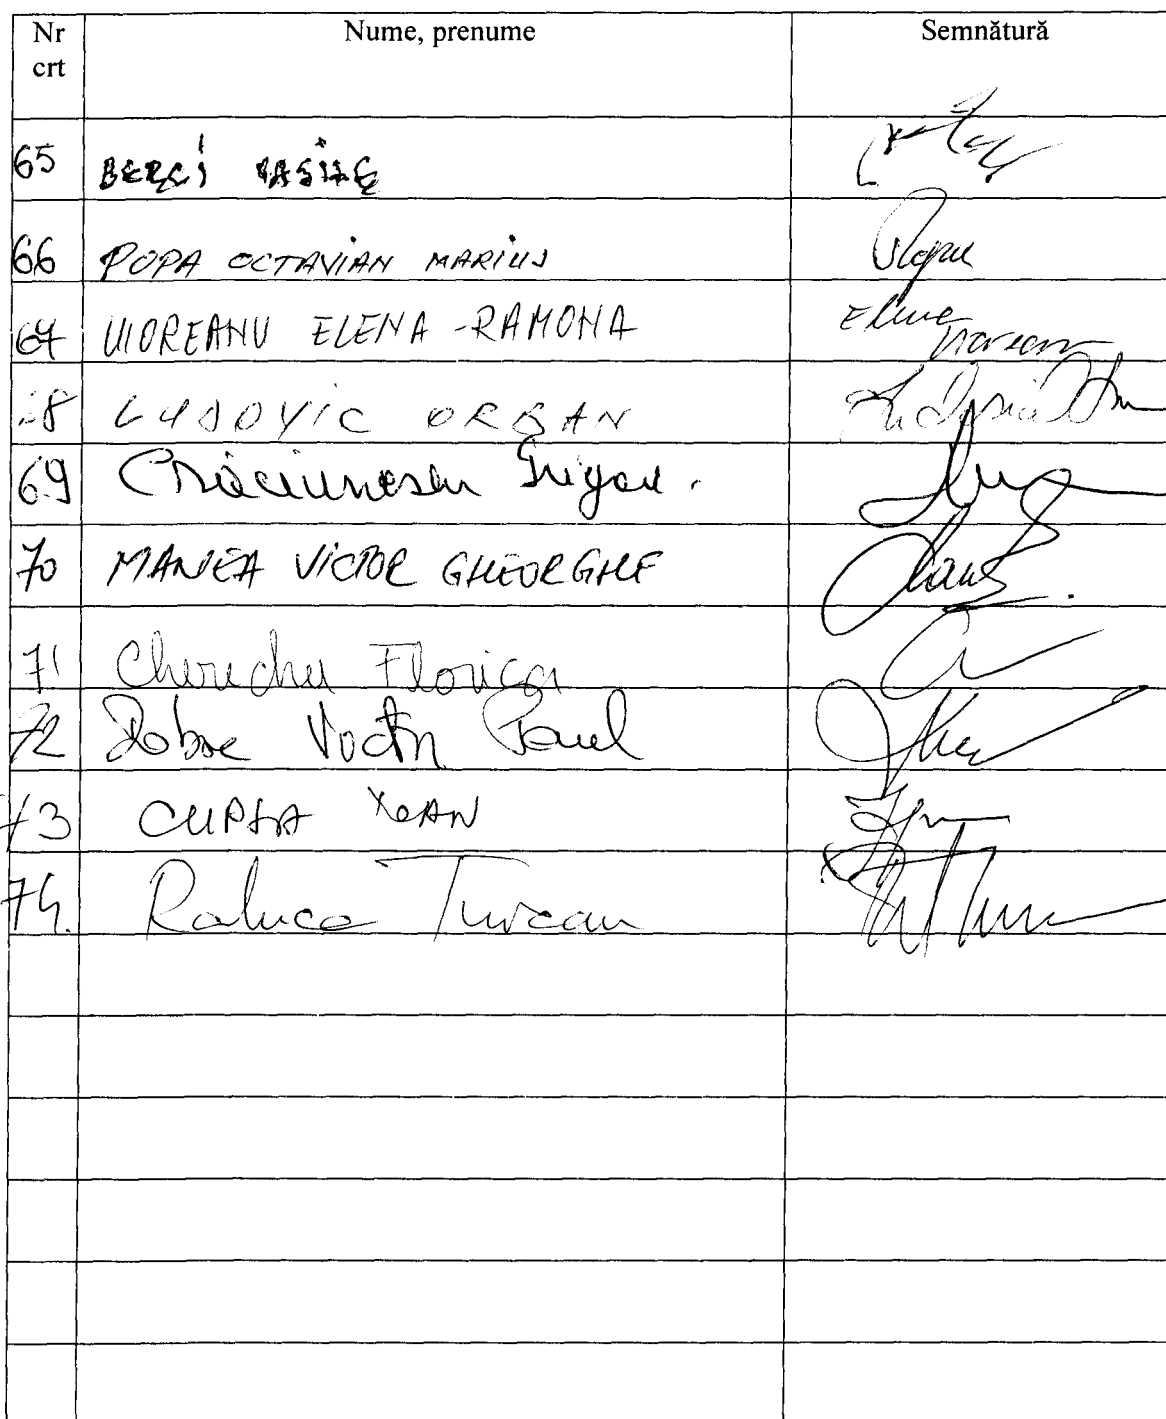 Nr crt Nume, prenume Semnătură
65 BERCI VASILE
66 POPA OCTAVIAN MARIUS
67 VIOREANU ELENA-RAMONA
68 LUDOVIC ORBAN
69 Crăciunescu Grigore.
70 MANEA VICTOR GHEORGHE
71 Cherecheș Florica
72 Dobre Victor Paul
73 CUPȘA IOAN
74. Raluca Turcan